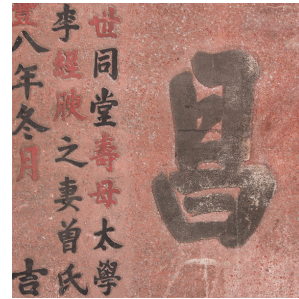 昌
世同堂壽母太學
李經腴之妻曾氏
八年冬月吉